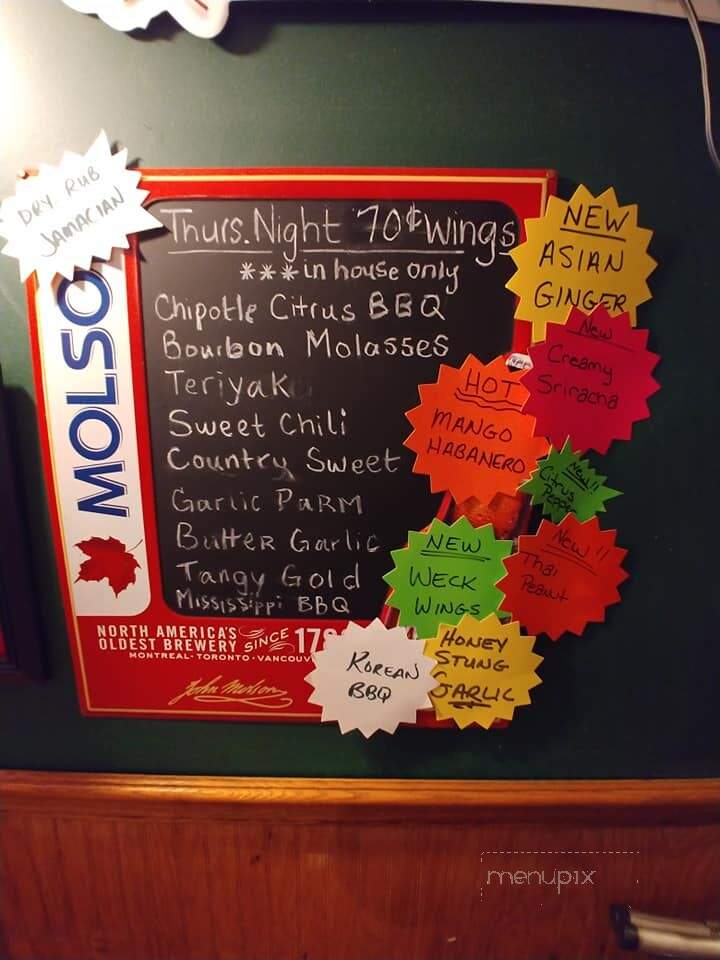 DRY RUB
JAMACIAN
Thurs. Night 70¢ wings
***in house only
Chipotle Citrus BBQ
Bourbon Molasses
Teriyak
Sweet Chili
Country Sweet
Garlic PARM
Butter Garlic
Tangy Gold
Mississippi BBQ
MOLSO
NEW
ASIAN
GINGER
New
Creamy
Sriracha
HOT
MANGO
HABANERO
New!!
Citrus
Pepper
NEW
WECK
WINGS
New!!
Thai
Peanut
HONEY
STUNG
GARLIC
KOREAN
BBQ
NORTH AMERICA'S
OLDEST BREWERY SINCE 17
MONTREAL · TORONTO · VANCOUV
John Molson
menupix